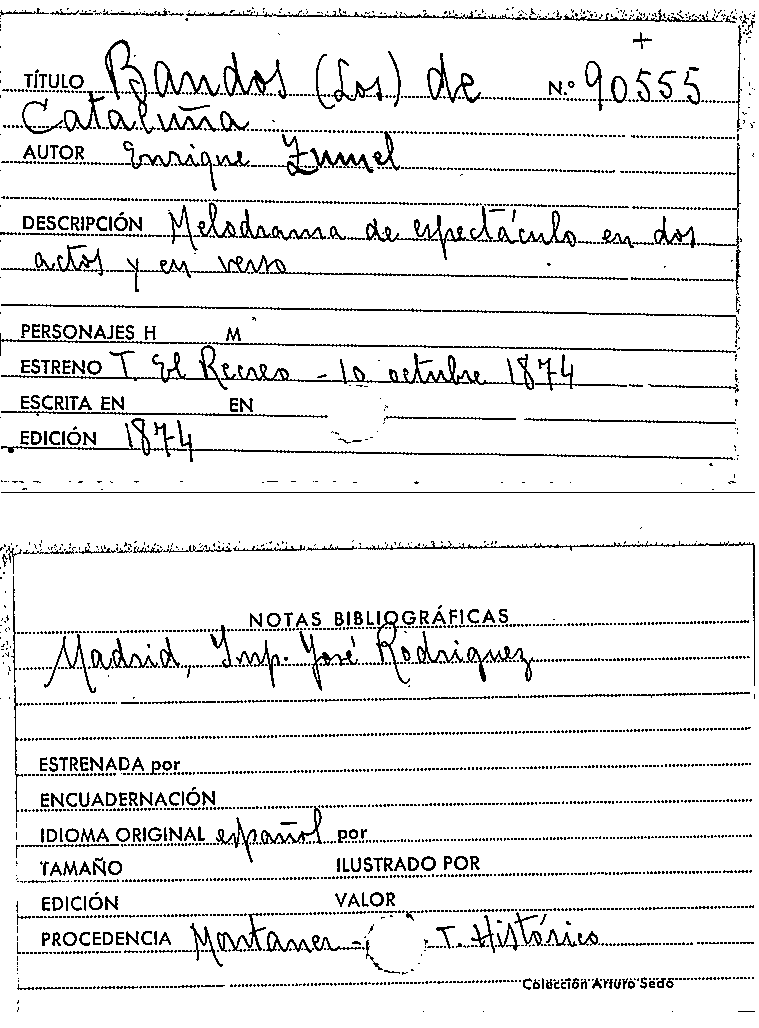 +
TÍTULO Bandos (Los) de N.º 90555
Cataluña
AUTOR Enrique Zumel
DESCRIPCIÓN Melodrama de espectáculo en dos
actos y en verso
PERSONAJES H M
ESTRENO T. El Recreo - 10 octubre 1874
ESCRITA EN EN
EDICIÓN 1874
NOTAS BIBLIOGRÁFICAS
Madrid, Imp. José Rodriguez
ESTRENADA por
ENCUADERNACIÓN
IDIOMA ORIGINAL español por
TAMAÑO ILUSTRADO POR
EDICIÓN VALOR
PROCEDENCIA Montaner - T. Histórico
Colección Arturo Sedó